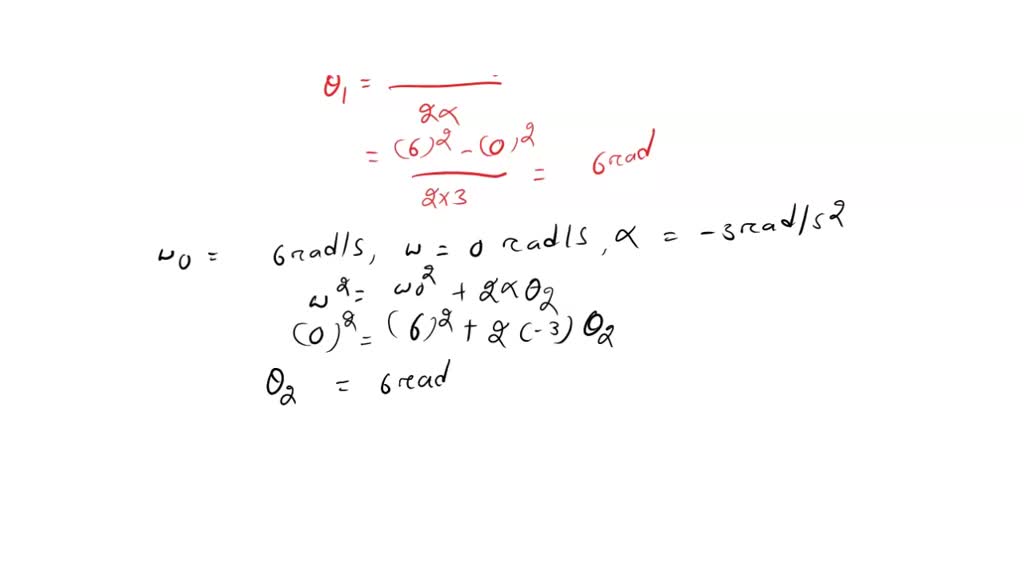 θ₁ = ───
2α
= (6)² - (0)²
─── = 6 rad
2×3
ω₀ = 6 rad/s, ω = 0 rad/s, α = -3 rad/s²
ω² = ω₀² + 2αθ₂
(0)² = (6)² + 2(-3) θ₂
θ₂ = 6 rad